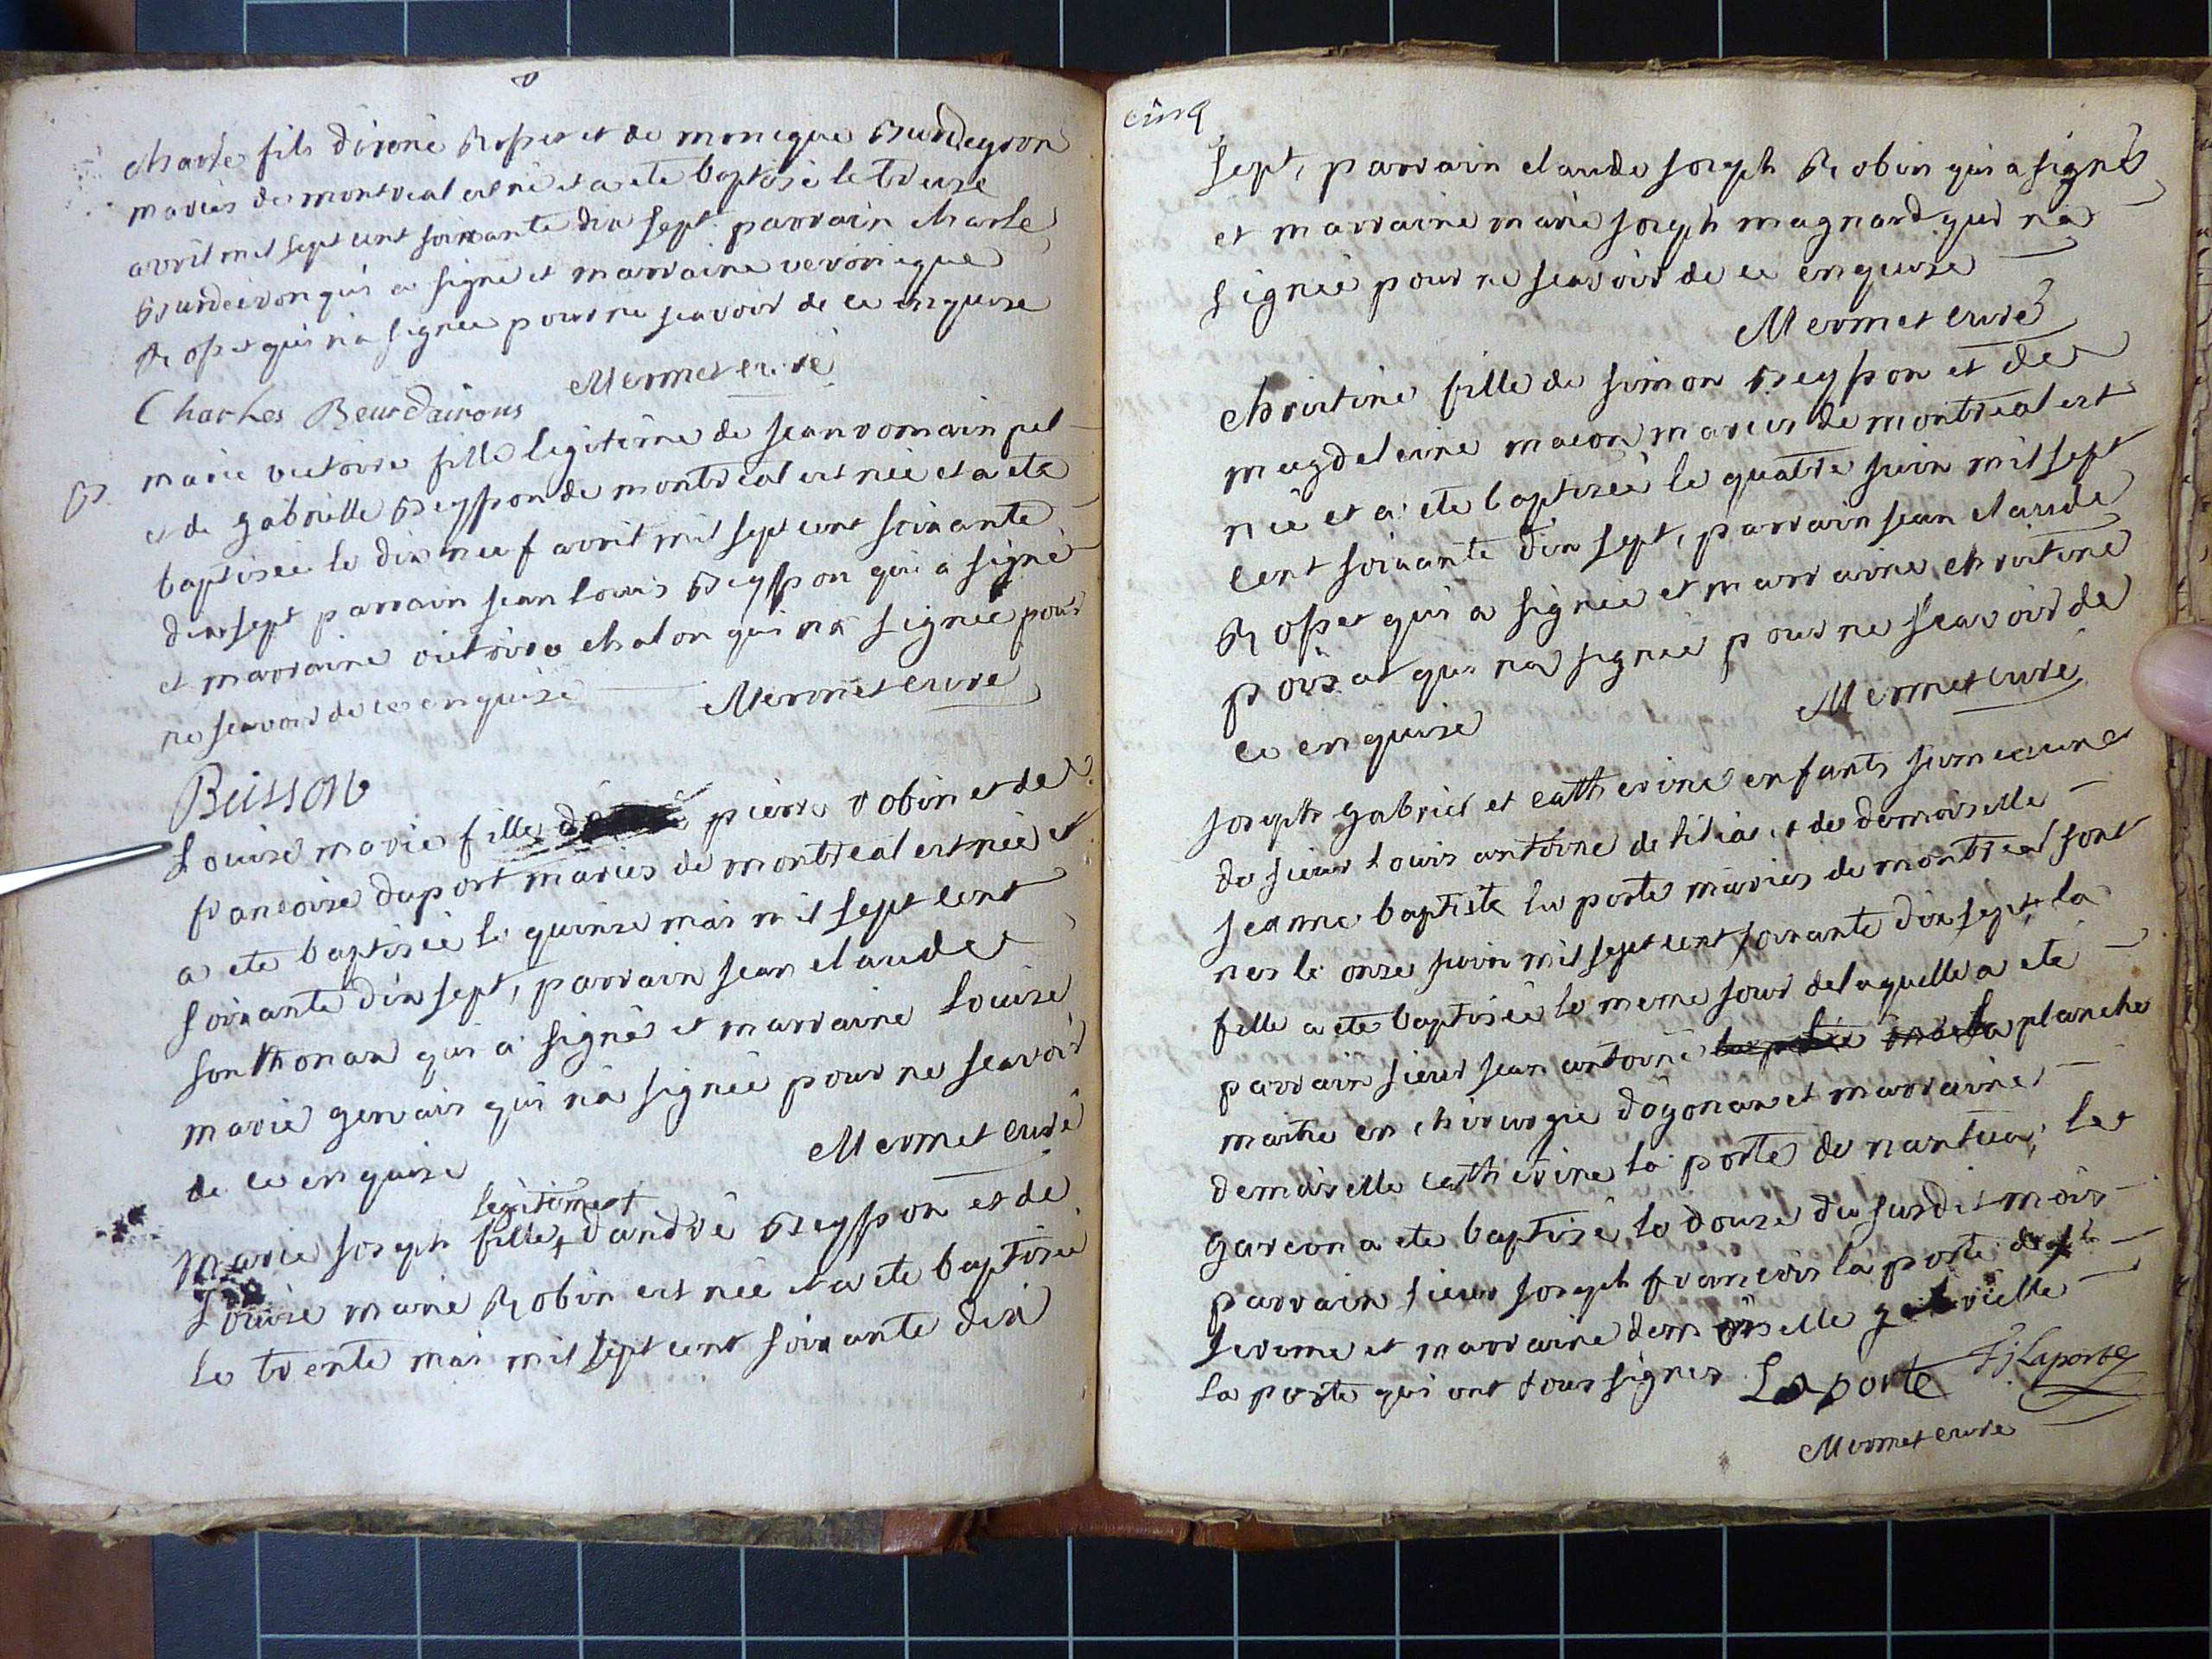 charle fils d'irené Rosset et de monique Burdeyron
mariés de montreal est né et a ete baptisé le treize
avril mil sept cent soixante dix sept parrain charle
Burdeiron qui a signé et marraine veronique
Rosset qui n'a signée pour ne scavoir de ce enquise
Mermet curé
Charles Beurdairons
marie victoire fille legitime de jean romain pel
et de gabrielle Beysson de montreal est née et a ete
baptisée le dix neuf avril mil sept cent soixante
dix sept parrain jean louis Beysson qui a signé
et marraine victoire chalon qui n'a signée pour
ne scavoir de ce enquise
Mermet curé
Beisson
Louise marie fille de pierre robin et de
francoise duport mariés de montreal est née et
a ete baptisée le quinze mai mil sept cent
soixante dix sept, parrain jean claude
sonthonax qui a signé et marraine Louise
marie gervais qui n'a signée pour ne scavoir
de ce enquise
Mermet curé
legitime
Marie joseph fille, d'andré Beysson et de
Louise marie Robin est née et a ete baptisée
le trente mai mil sept cent soixante dix
cinq
sept, parrain claude joseph Robin qui a signé
et marraine marie joseph magnard qui n'a
signée pour ne scavoir de ce enquise
Mermet curé
christine fille de simon Beysson et de
magdeleine macon mariés de montreal est
née et a ete baptisée le quatre juin mil sept
cent soixante dix sept, parrain jean claude
Rosset qui a signée et marraine christine
poizat qui n'a signée pour ne scavoir de
ce enquise
Mermet curé
joseph gabriel et catherine enfants jumeaux
du sieur louis antoine de lilia et de demoiselle
jeanne baptiste la porte mariés de montreal sont
nes le onze juin mil sept cent soixante dix sept, la
fille a ete baptisée le meme jour de laquelle a ete
parrain sieur jean antoine la planche
maitre en chirurgie d'ogonax et marraine
demoiselle catherine la porte de nantua, le
garcon a ete baptisé le douze du susdit mois
parrain sieur joseph francois la porte de st
jerome et marraine demoiselle gabrielle
la porte qui ont tous signes
Laporte
F j Laporte
Mermet curé